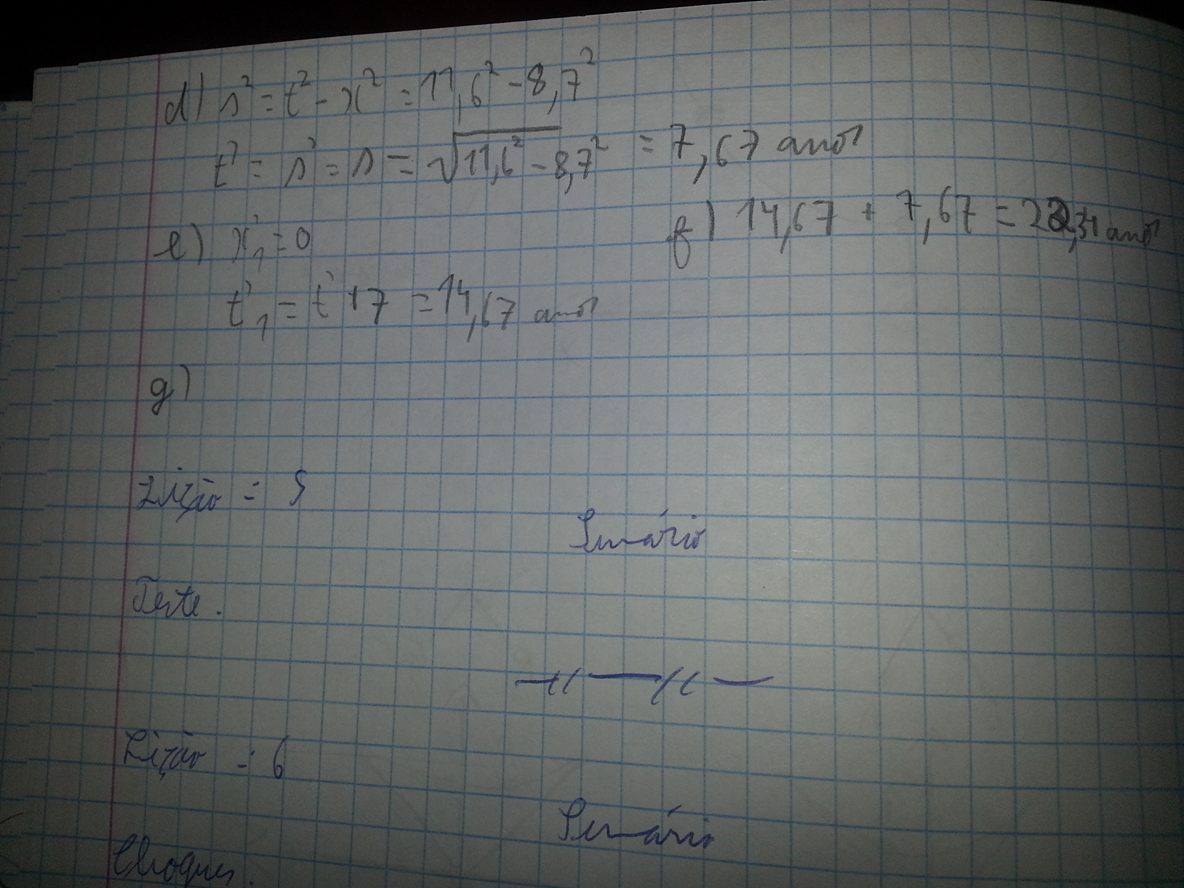 d) s² = t² - x² = 11,6² - 8,7²
t' = s' = s = √11,6² - 8,7² = 7,67 anos
e) x'₁ = 0
f) 14,67 + 7,67 = 22,34 anos
t'₁ = t' + 7 = 14,67 anos
g)
Lição = 5
Sumário
Teste.
Lição = 6
Sumário
Choques.